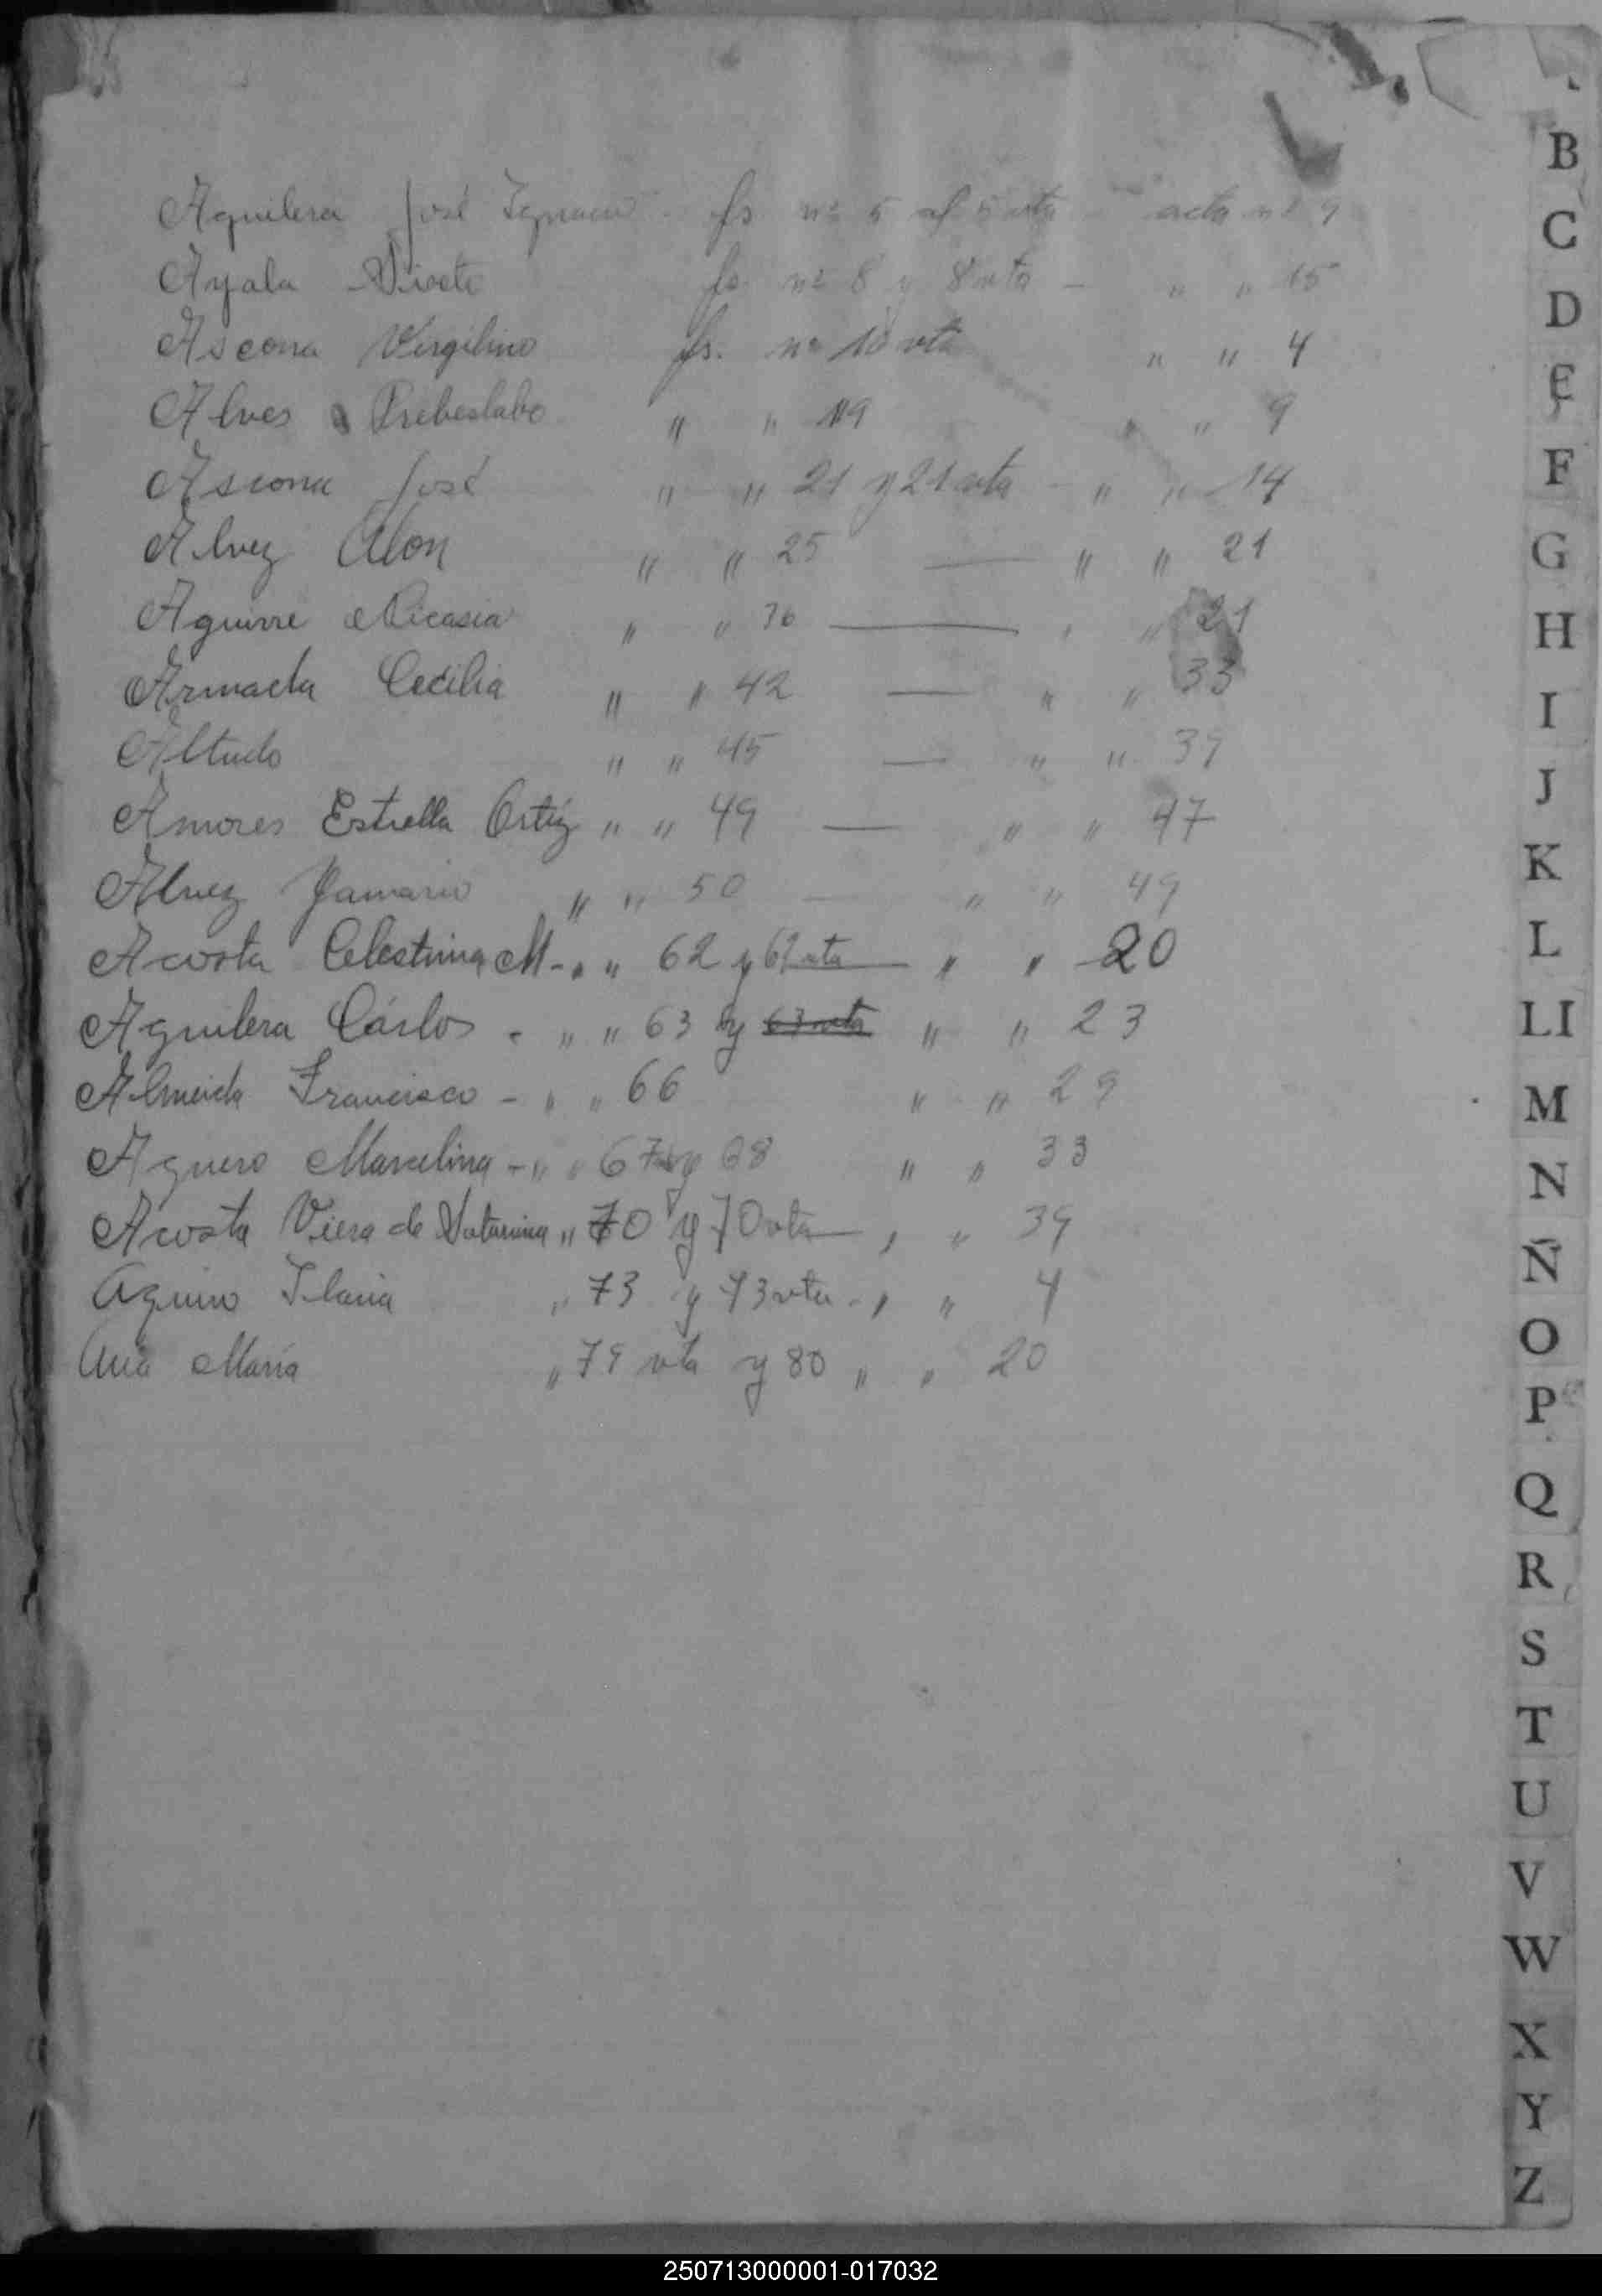 Aguilera José Ignacio - fs. nº 5 al 5 vta - acta nº 9
Ayala fs. nº 8 y 8 vta - " " 15
Ascona Virgilino fs. nº 10 vta " " 4
Alves " " 19 " " 9
Ascona José " " 21 y 21 vta - " " 14
Alvez Alon " " 25 — " " 21
Aguirre Nicasia " " 36 — " " 21
Armada Cecilia " " 42 — " " 33
Altudo " " 45 — " " 39
Amores Estrella Ortíz " " 49 — " " 47
Alvez Januario " " 50 — " " 49
Acosta Celestina M - " " 62 y 62 vta — " " 20
Aguilera Cárlos - " " 63 y 63 vta " " 23
Almeida Francisco - " " 66 " " 29
Aguero Marcelina - " " 67 y 68 " " 33
Acosta Viera de Saturnina " 70 y 70 vta — " " 39
Aquino Ilaria " 73 y 73 vta - " " 4
Ana María " 79 vta y 80 " " 20
B
C
D
E
F
G
H
I
J
K
L
Ll
M
N
Ñ
O
P
Q
R
S
T
U
V
W
X
Y
Z
250713000001-017032